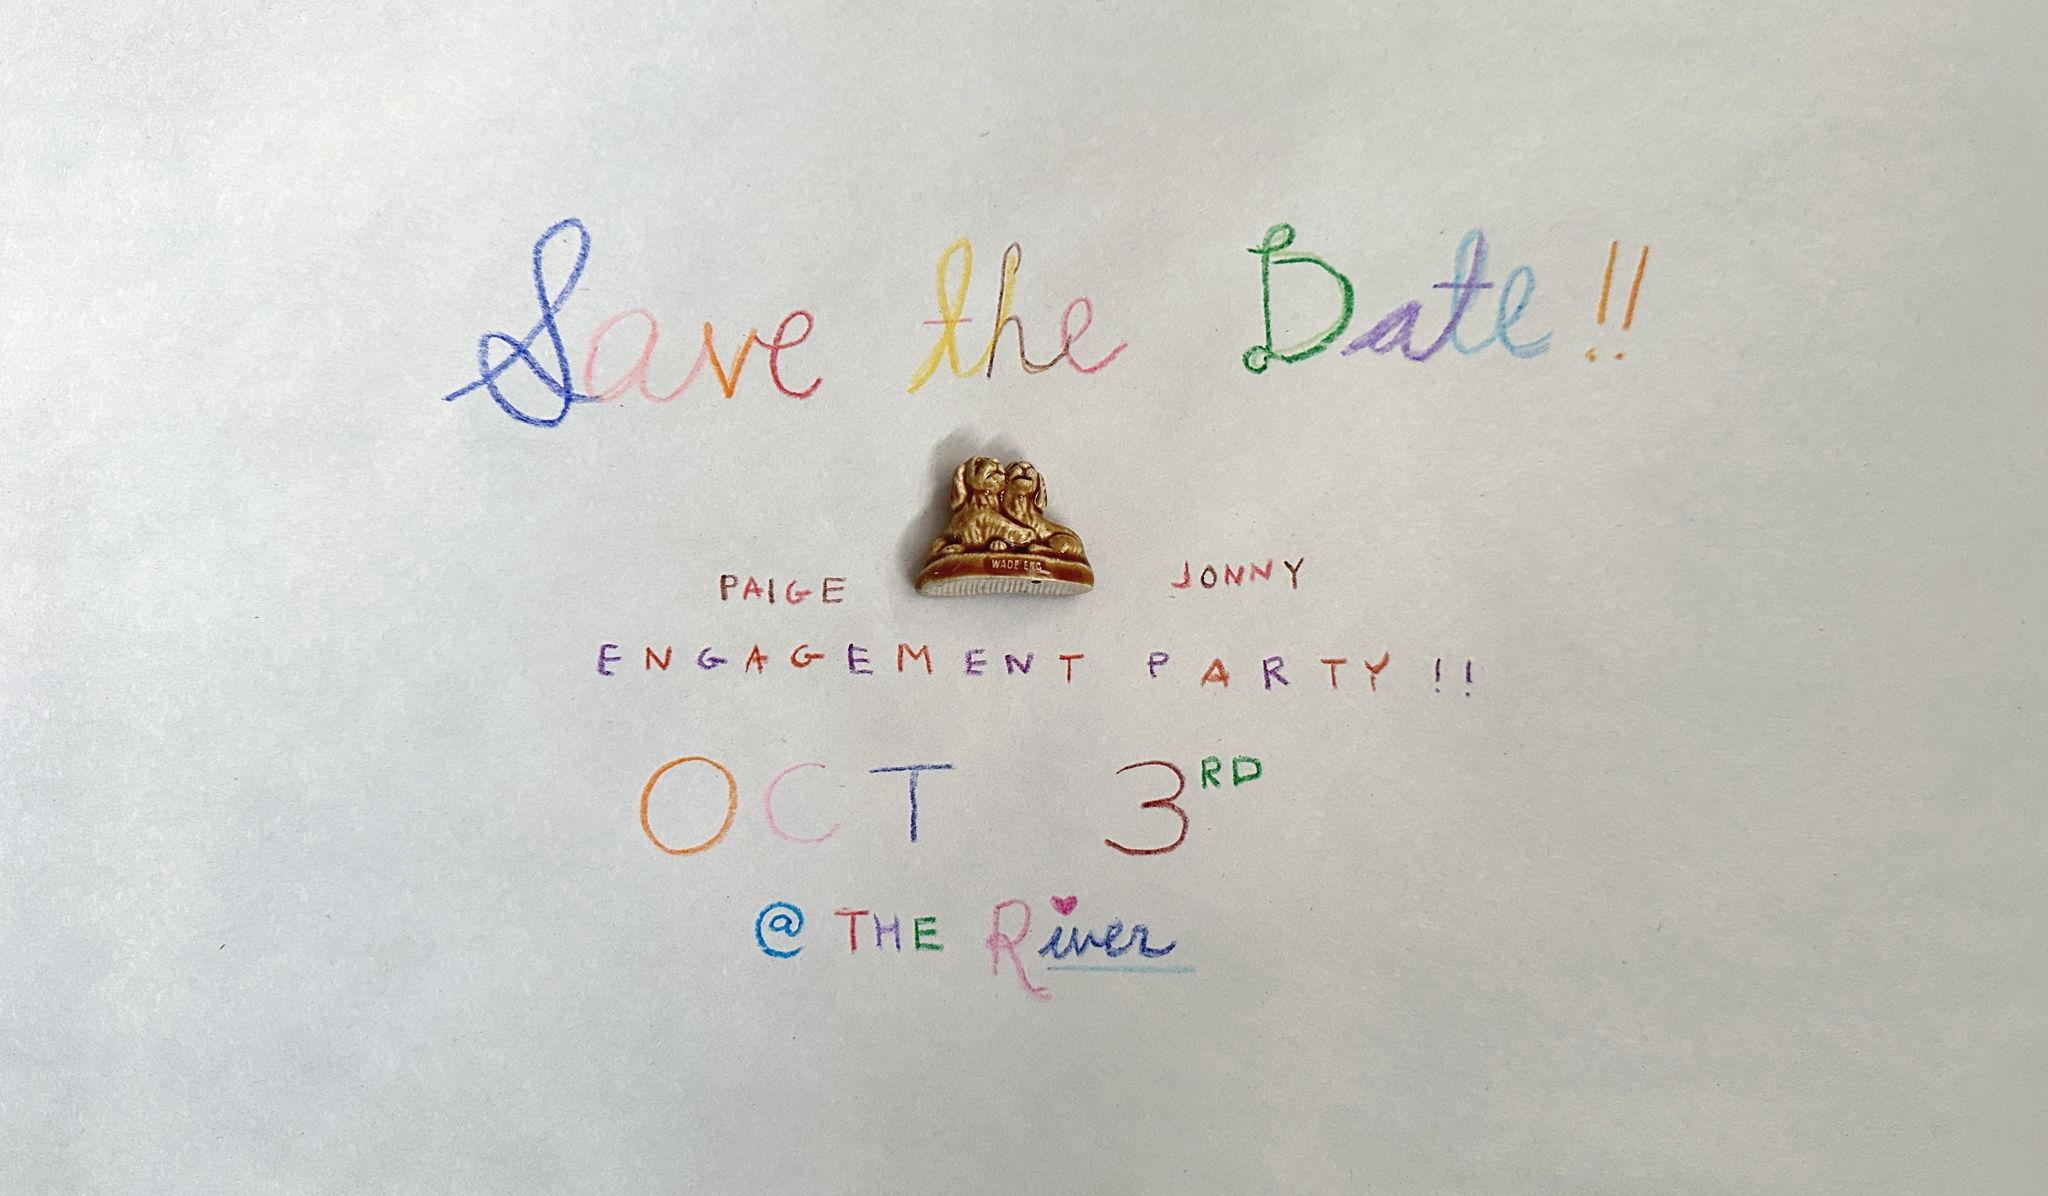 Save the Date!!
WADE ENG
PAIGE JONNY
ENGAGEMENT PARTY!!
OCT 3RD
@ THE River